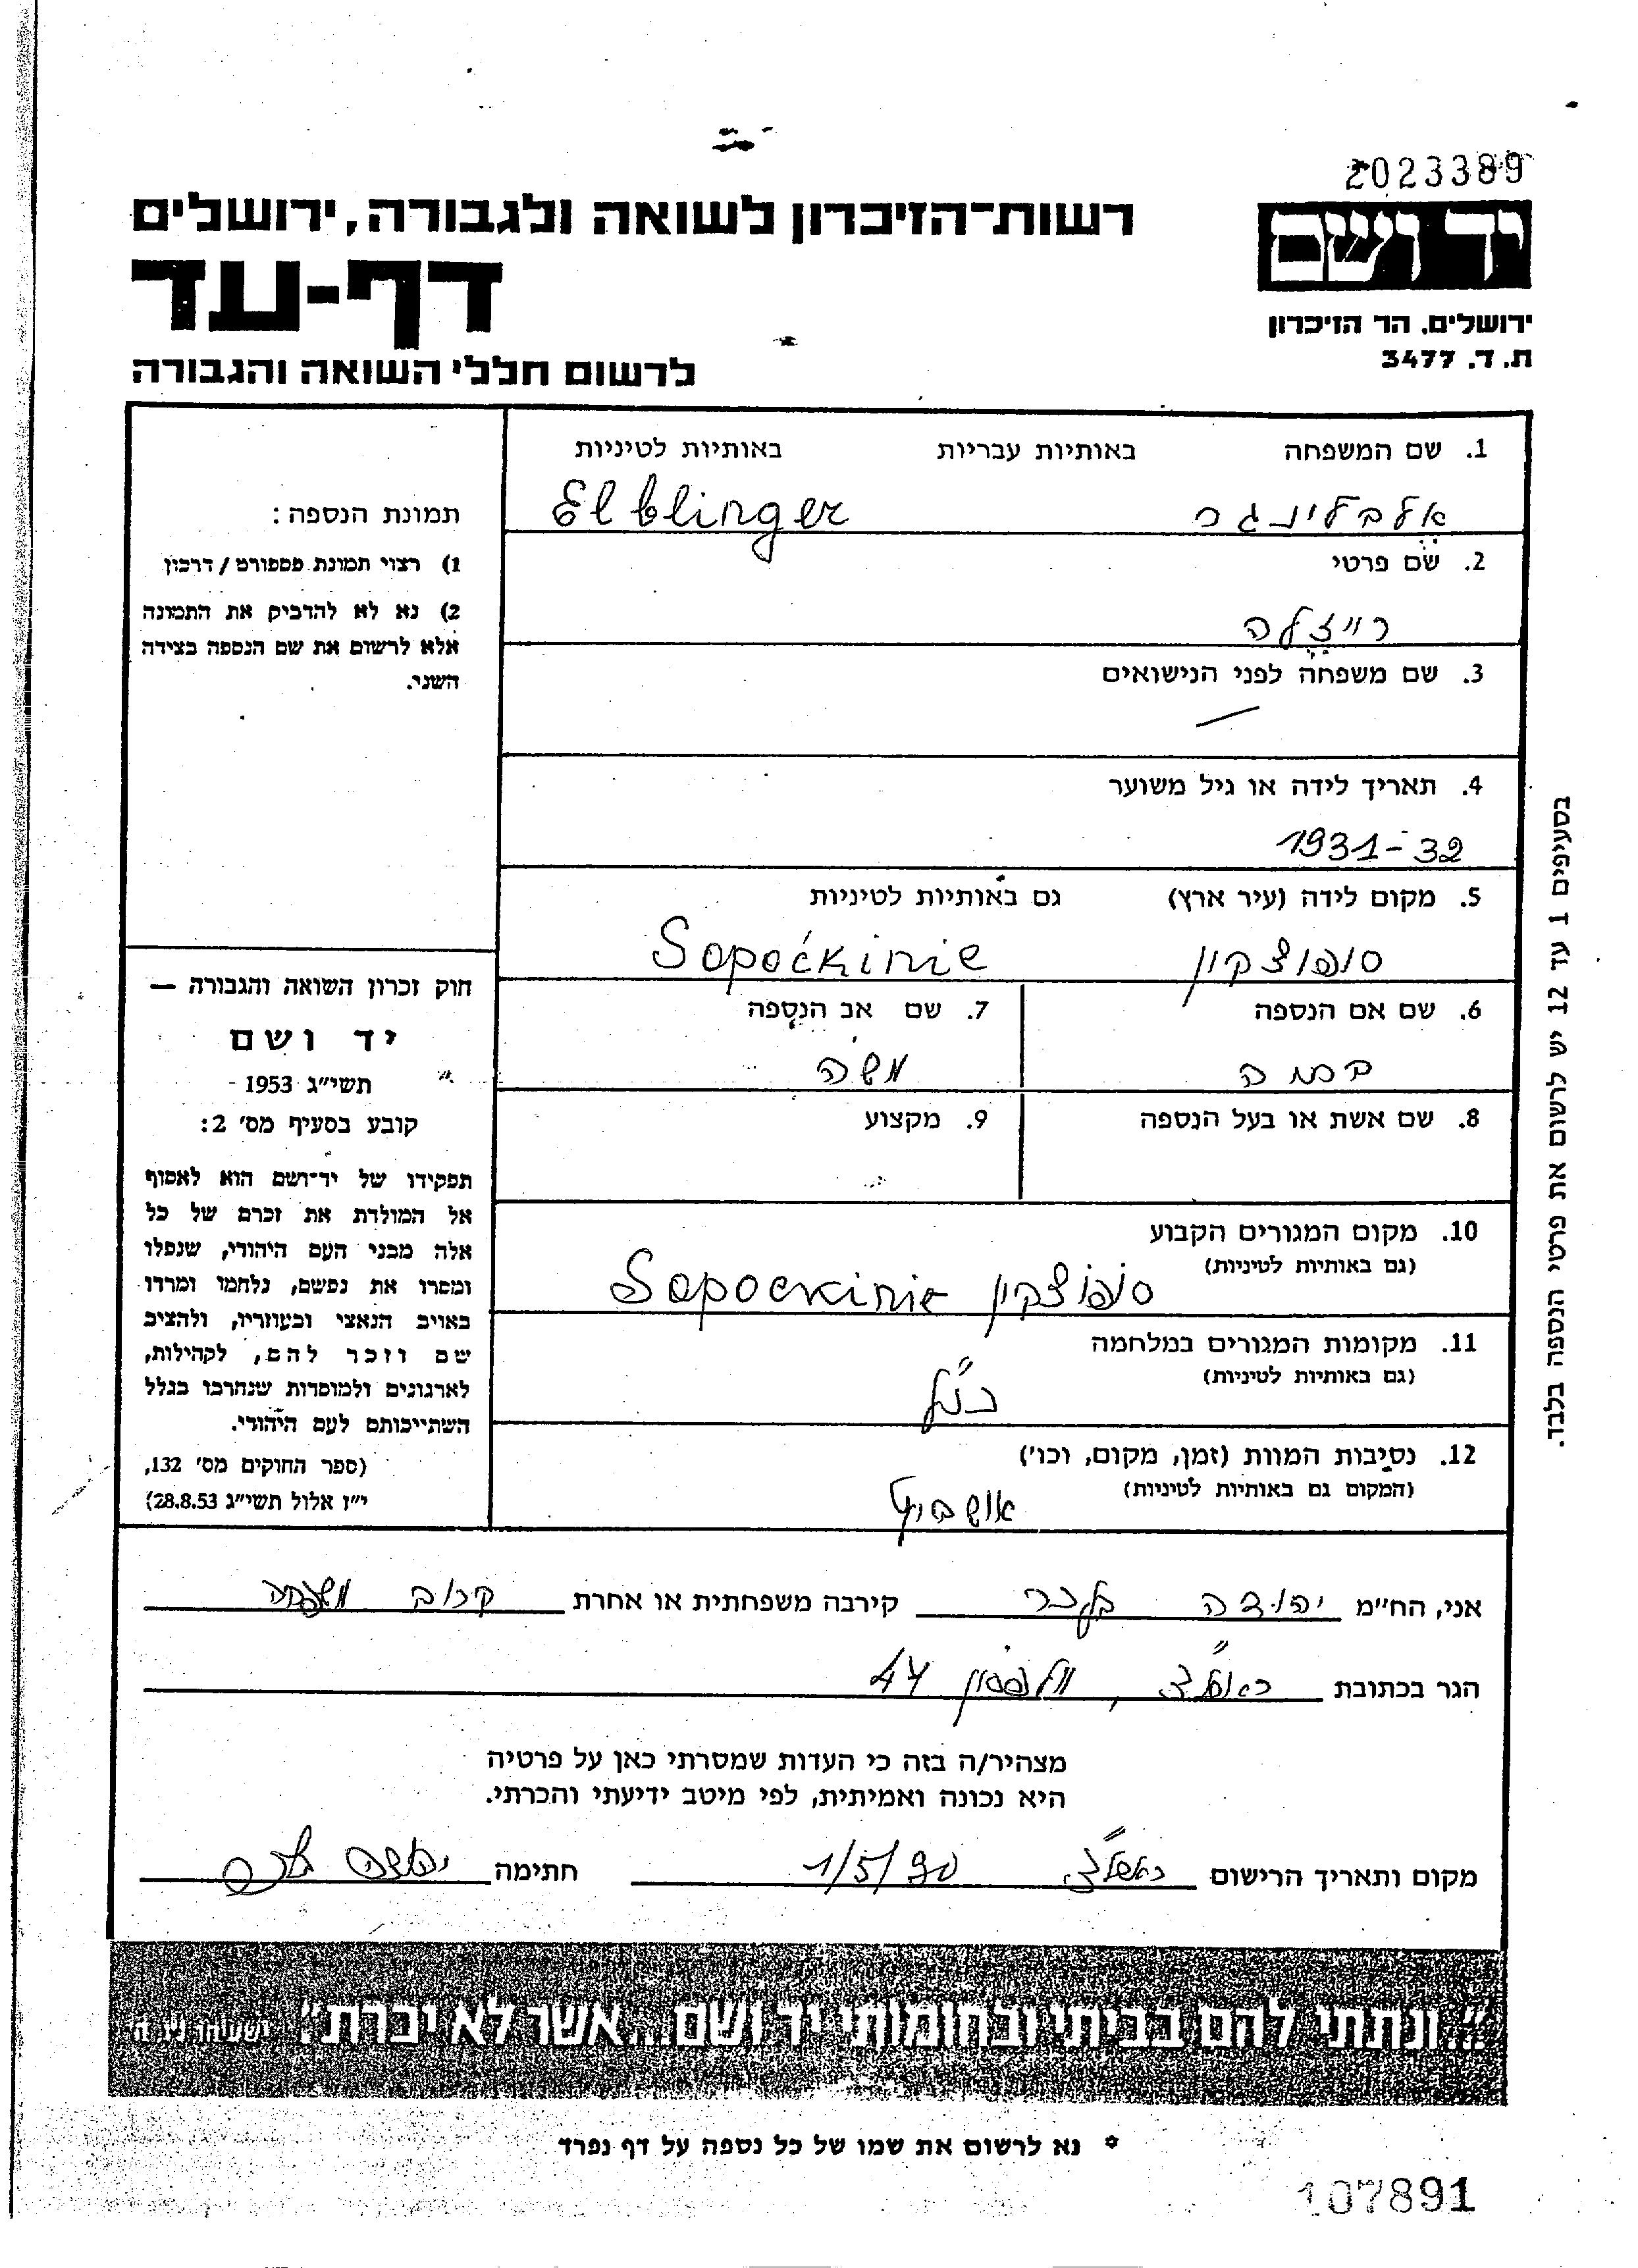 2023389
יד ושם
ירושלים. הר הזיכרון
ת. ד. 3477
רשות־הזיכרון לשואה ולגבורה, ירושלים
דף-עד
לרשום חללי השואה והגבורה
1. שם המשפחה באותיות עבריות באותיות לטיניות
אלבלינגר Elblinger
2. שם פרטי
רייזלה
3. שם משפחה לפני הנישואים
—
4. תאריך לידה או גיל משוער
1931-32
5. מקום לידה (עיר ארץ) גם באותיות לטיניות
סופוצקין Sopoćkinie
6. שם אם הנספה 7. שם אב הנספה
ברכה משה
8. שם אשת או בעל הנספה 9. מקצוע
10. מקום המגורים הקבוע
(גם באותיות לטיניות)
סופוצקין Sopockinie
11. מקומות המגורים במלחמה
(גם באותיות לטיניות)
כנ"ל
12. נסיבות המוות (זמן, מקום, וכו')
(המקום גם באותיות לטיניות)
אושביץ
תמונת הנספה:
1) רצוי תמונת פספורט / דרכון
2) נא לא להדביק את התמונה
אלא לרשום את שם הנספה בצידה
השני.
חוק זכרון השואה והגבורה —
יד ושם
תשי״ג 1953
קובע בסעיף מס׳ 2:
תפקידו של יד־ושם הוא לאסוף
אל המולדת את זכרם של כל
אלה מבני העם היהודי, שנפלו
ומסרו את נפשם, נלחמו ומרדו
באויב הנאצי ובעוזריו, ולהציב
שם וזכר להם, לקהילות,
לארגונים ולמוסדות שנחרבו בגלל
השתייכותם לעם היהודי.
(ספר החוקים מס׳ 132,
י״ז אלול תשי״ג 28.8.53)
בסעיפים 1 עד 12 יש לרשום את פרטי הנספה בלבד.
אני, הח״מ יהודה קירבה משפחתית או אחרת קרוב משפחה
הגר בכתובת ראשל"צ, 44
מצהיר/ה בזה כי העדות שמסרתי כאן על פרטיה
היא נכונה ואמיתית, לפי מיטב ידיעתי והכרתי.
מקום ותאריך הרישום ראשל"צ 1/5/90 חתימה
"ונתתי להם בביתי ובחומותי יד ושם...אשר לא יכרת" ישעיהו נו ה
* נא לרשום את שמו של כל נספה על דף נפרד
107891